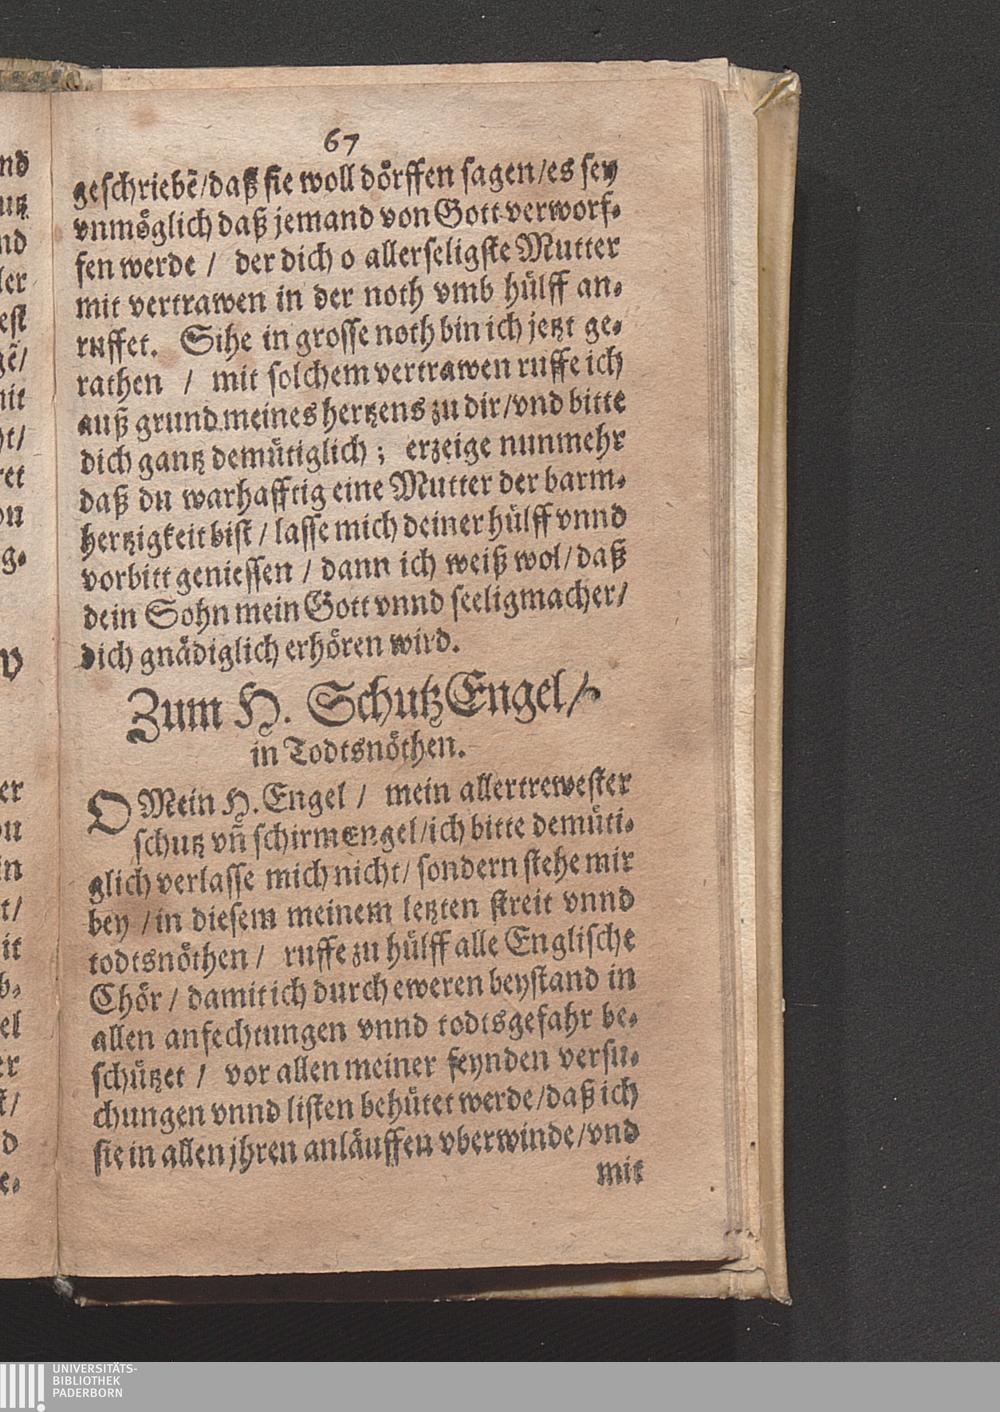 67
geschriebẽ/daß sie woll dörffen sagen/es sey
vnmöglich daß jemand von Gott verworf-
fen werde / der dich o allerseligste Mutter
mit vertrawen in der noth vmb hülff an-
ruffet. Sihe in grosse noth bin ich jetzt ge-
rathen / mit solchem vertrawen ruffe ich
auß grund meines hertzens zu dir/vnd bitte
dich gantz demütiglich; erzeige nunmehr
daß du warhafftig eine Mutter der barm-
hertzigkeit bist / lasse mich deiner hülff vnnd
vorbitt geniessen / dann ich weiß wol/daß
dein Sohn mein Gott vnnd seeligmacher/
dich gnädiglich erhören wird.
Zum H. SchutzEngel/
in Todtsnöthen.
O Mein H. Engel / mein allertrewester
schutz vñ schirmengel/ich bitte demüti-
glich verlasse mich nicht/ sondern stehe mir
bey /in diesem meinem letzten streit vnnd
todtsnöthen / ruffe zu hülff alle Englische
Chör / damit ich durch eweren beystand in
allen anfechtungen vnnd todtsgefahr be-
schützet / vor allen meiner feynden versu-
chungen vnnd listen behütet werde/daß ich
sie in allen jhren anläuffen vberwinde/vnd
mit
UNIVERSITÄTS-
BIBLIOTHEK
PADERBORN